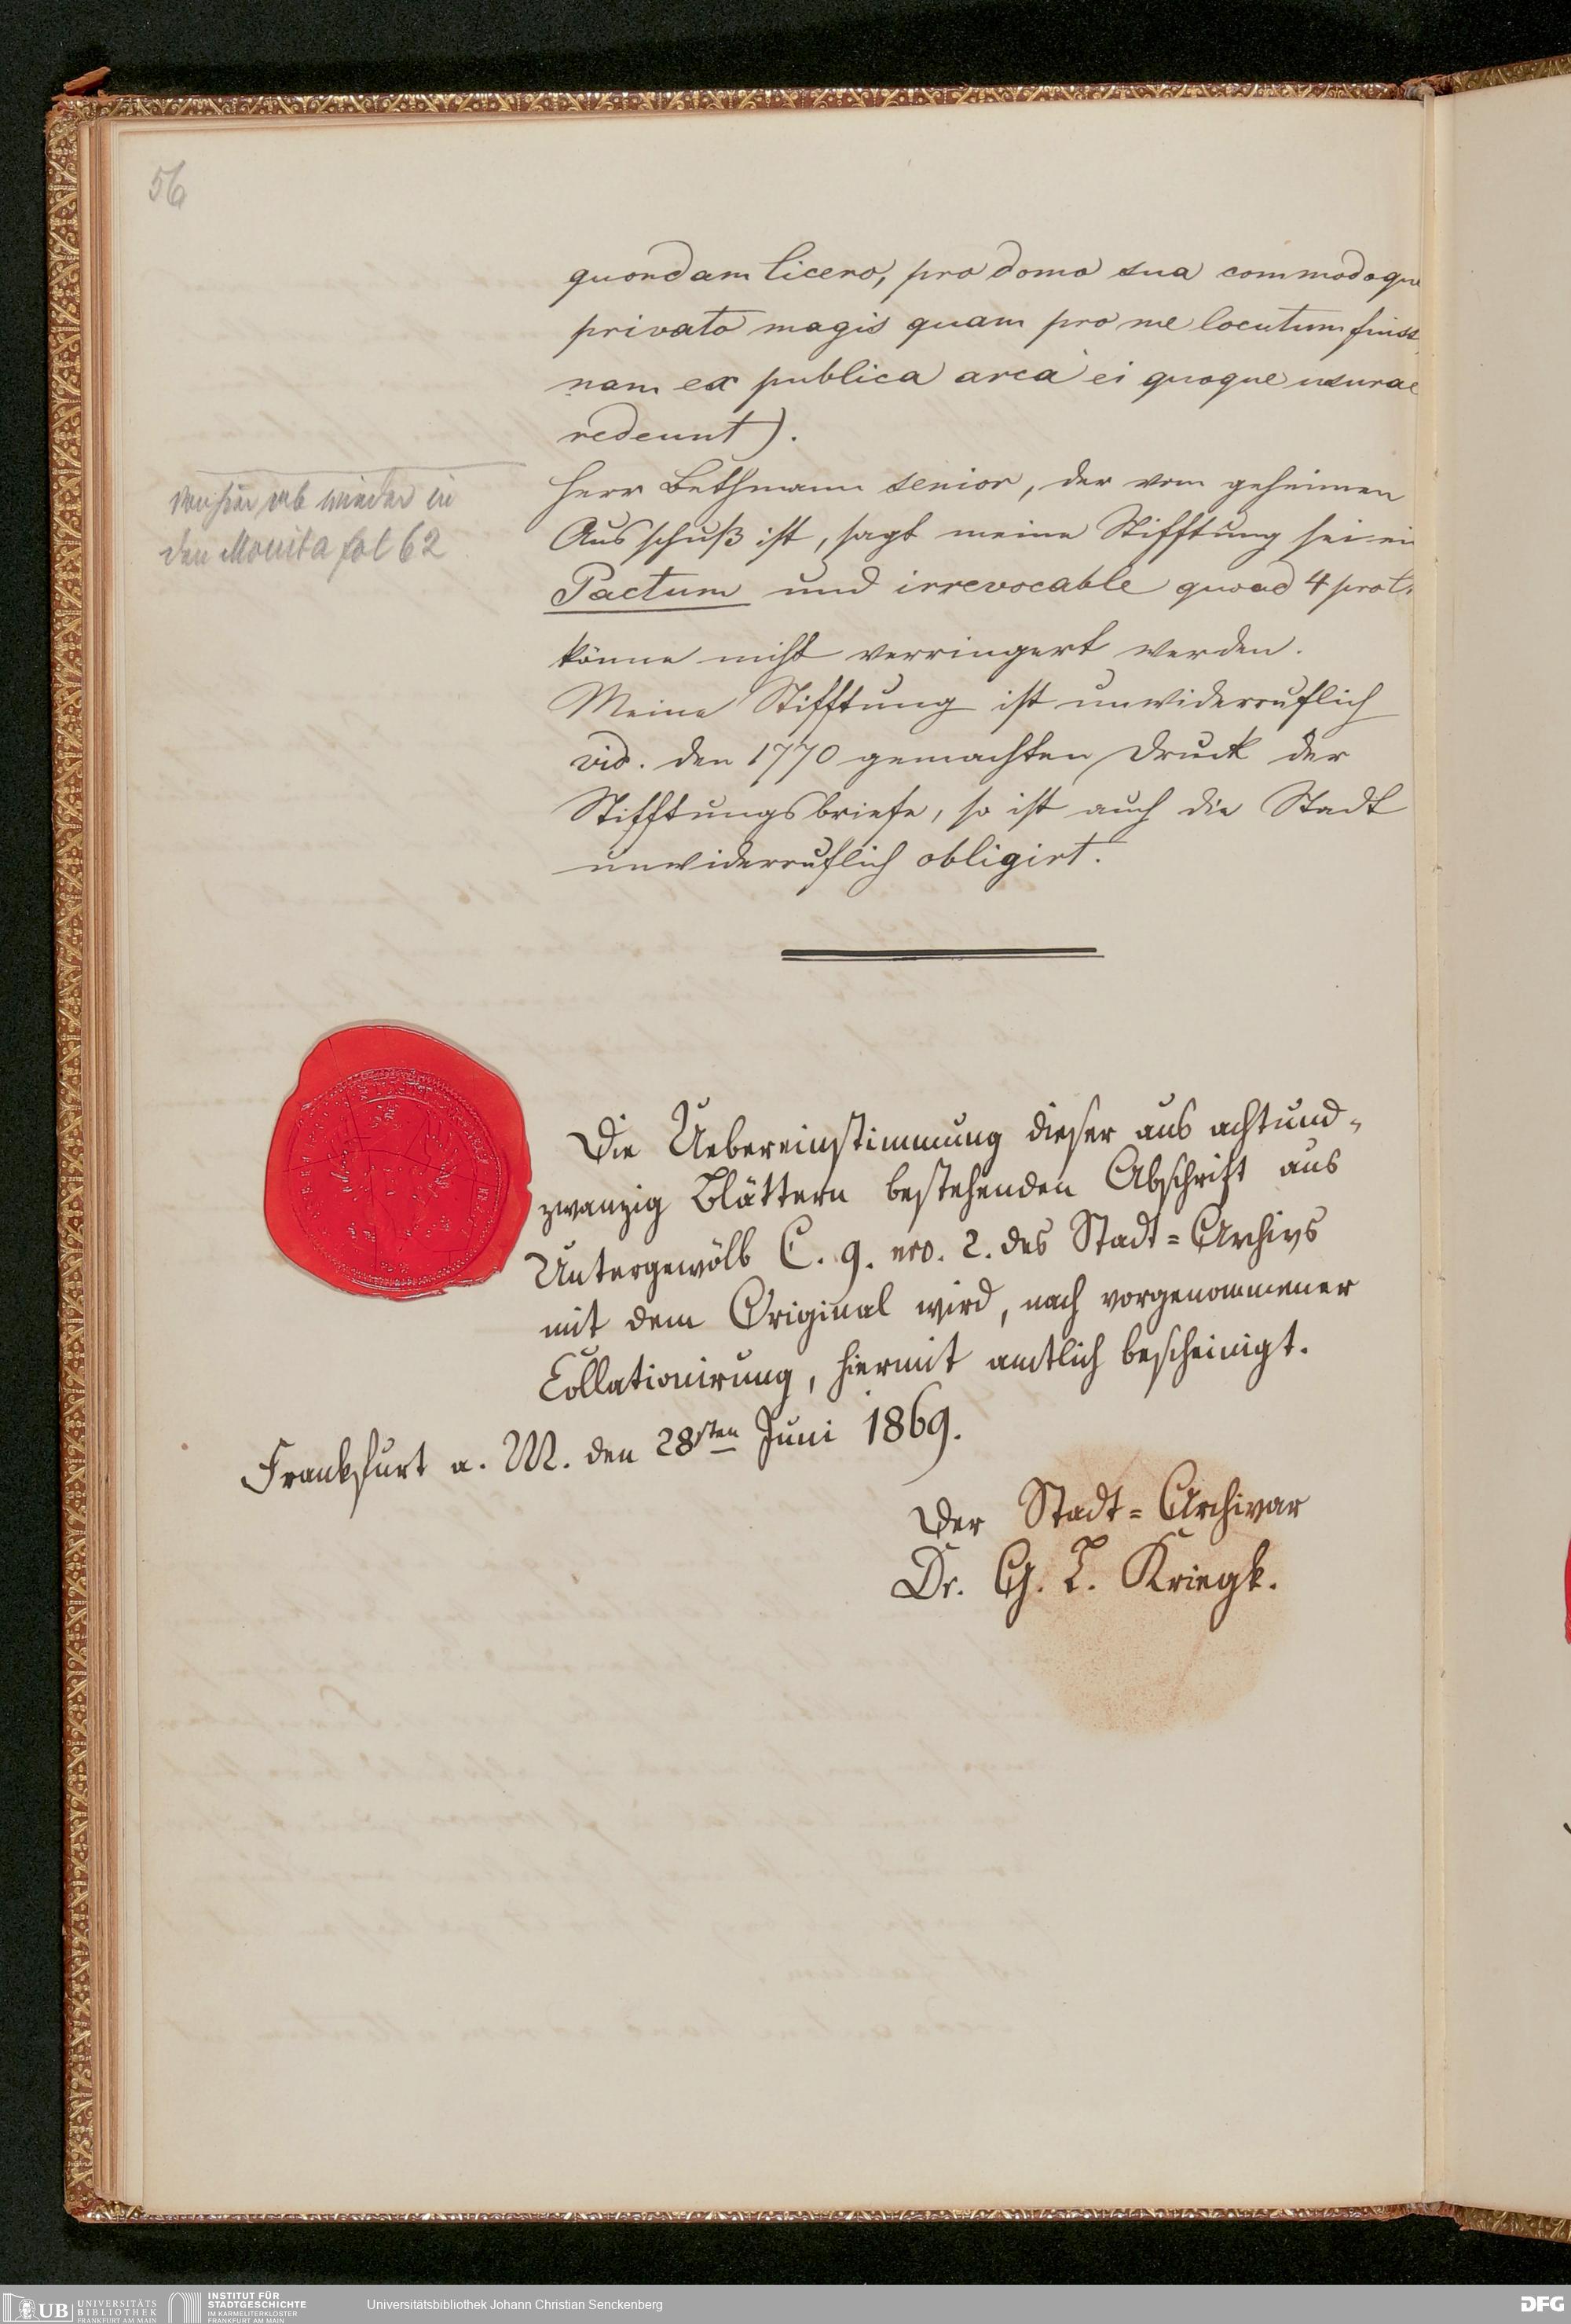 56
quondam Cicero, pro domo sua commodoque
privato magis quam pro me locutum fuiss
nam ex publica arca ei quoque usurae
redeunt).
von hier ab wieder in
den Monita fol 62
Herr Bethmann senior, der vom geheimen
Ausschuß ist, sagt meine Stifftung sei ein
Pactum und irrevocable quoad 4 prot.
könne nicht verringert werden.
Meine Stifftung ist unwiderruflich
vid. den 1770 gemachten Druck der
Stifftungsbriefe, so ist auch die Stadt
unwiderruflich obligirt.
Die Uebereinstimmung dieser aus achtund-
zwanzig Blättern bestehenden Abschrift aus
Untergewölb C. 9. nro. 2. des Stadt=Archivs
mit dem Original wird, nach vorgenommener
Collationirung, hiermit amtlich bescheinigt.
Frankfurt a. M. den 28sten Juni 1869.
Der Stadt=Archivar
Dr. G. L. Kriegk.
UB UNIVERSITÄTS
BIBLIOTHEK
FRANKFURT AM MAIN
INSTITUT FÜR
STADTGESCHICHTE
IM KARMELITERKLOSTER
FRANKFURT AM MAIN
Universitätsbibliothek Johann Christian Senckenberg
DFG